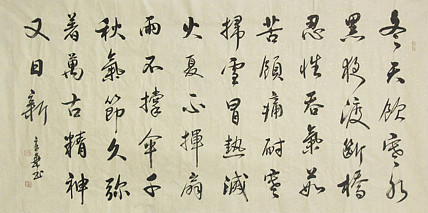 冬天飲寒水
黑夜渡斷橋
忍性吞氣茹
苦痛耐寒
掃雪冒熱滅
火夏不揮扇
雨不撐傘千
秋氣節久彌
著萬古精神
又日新